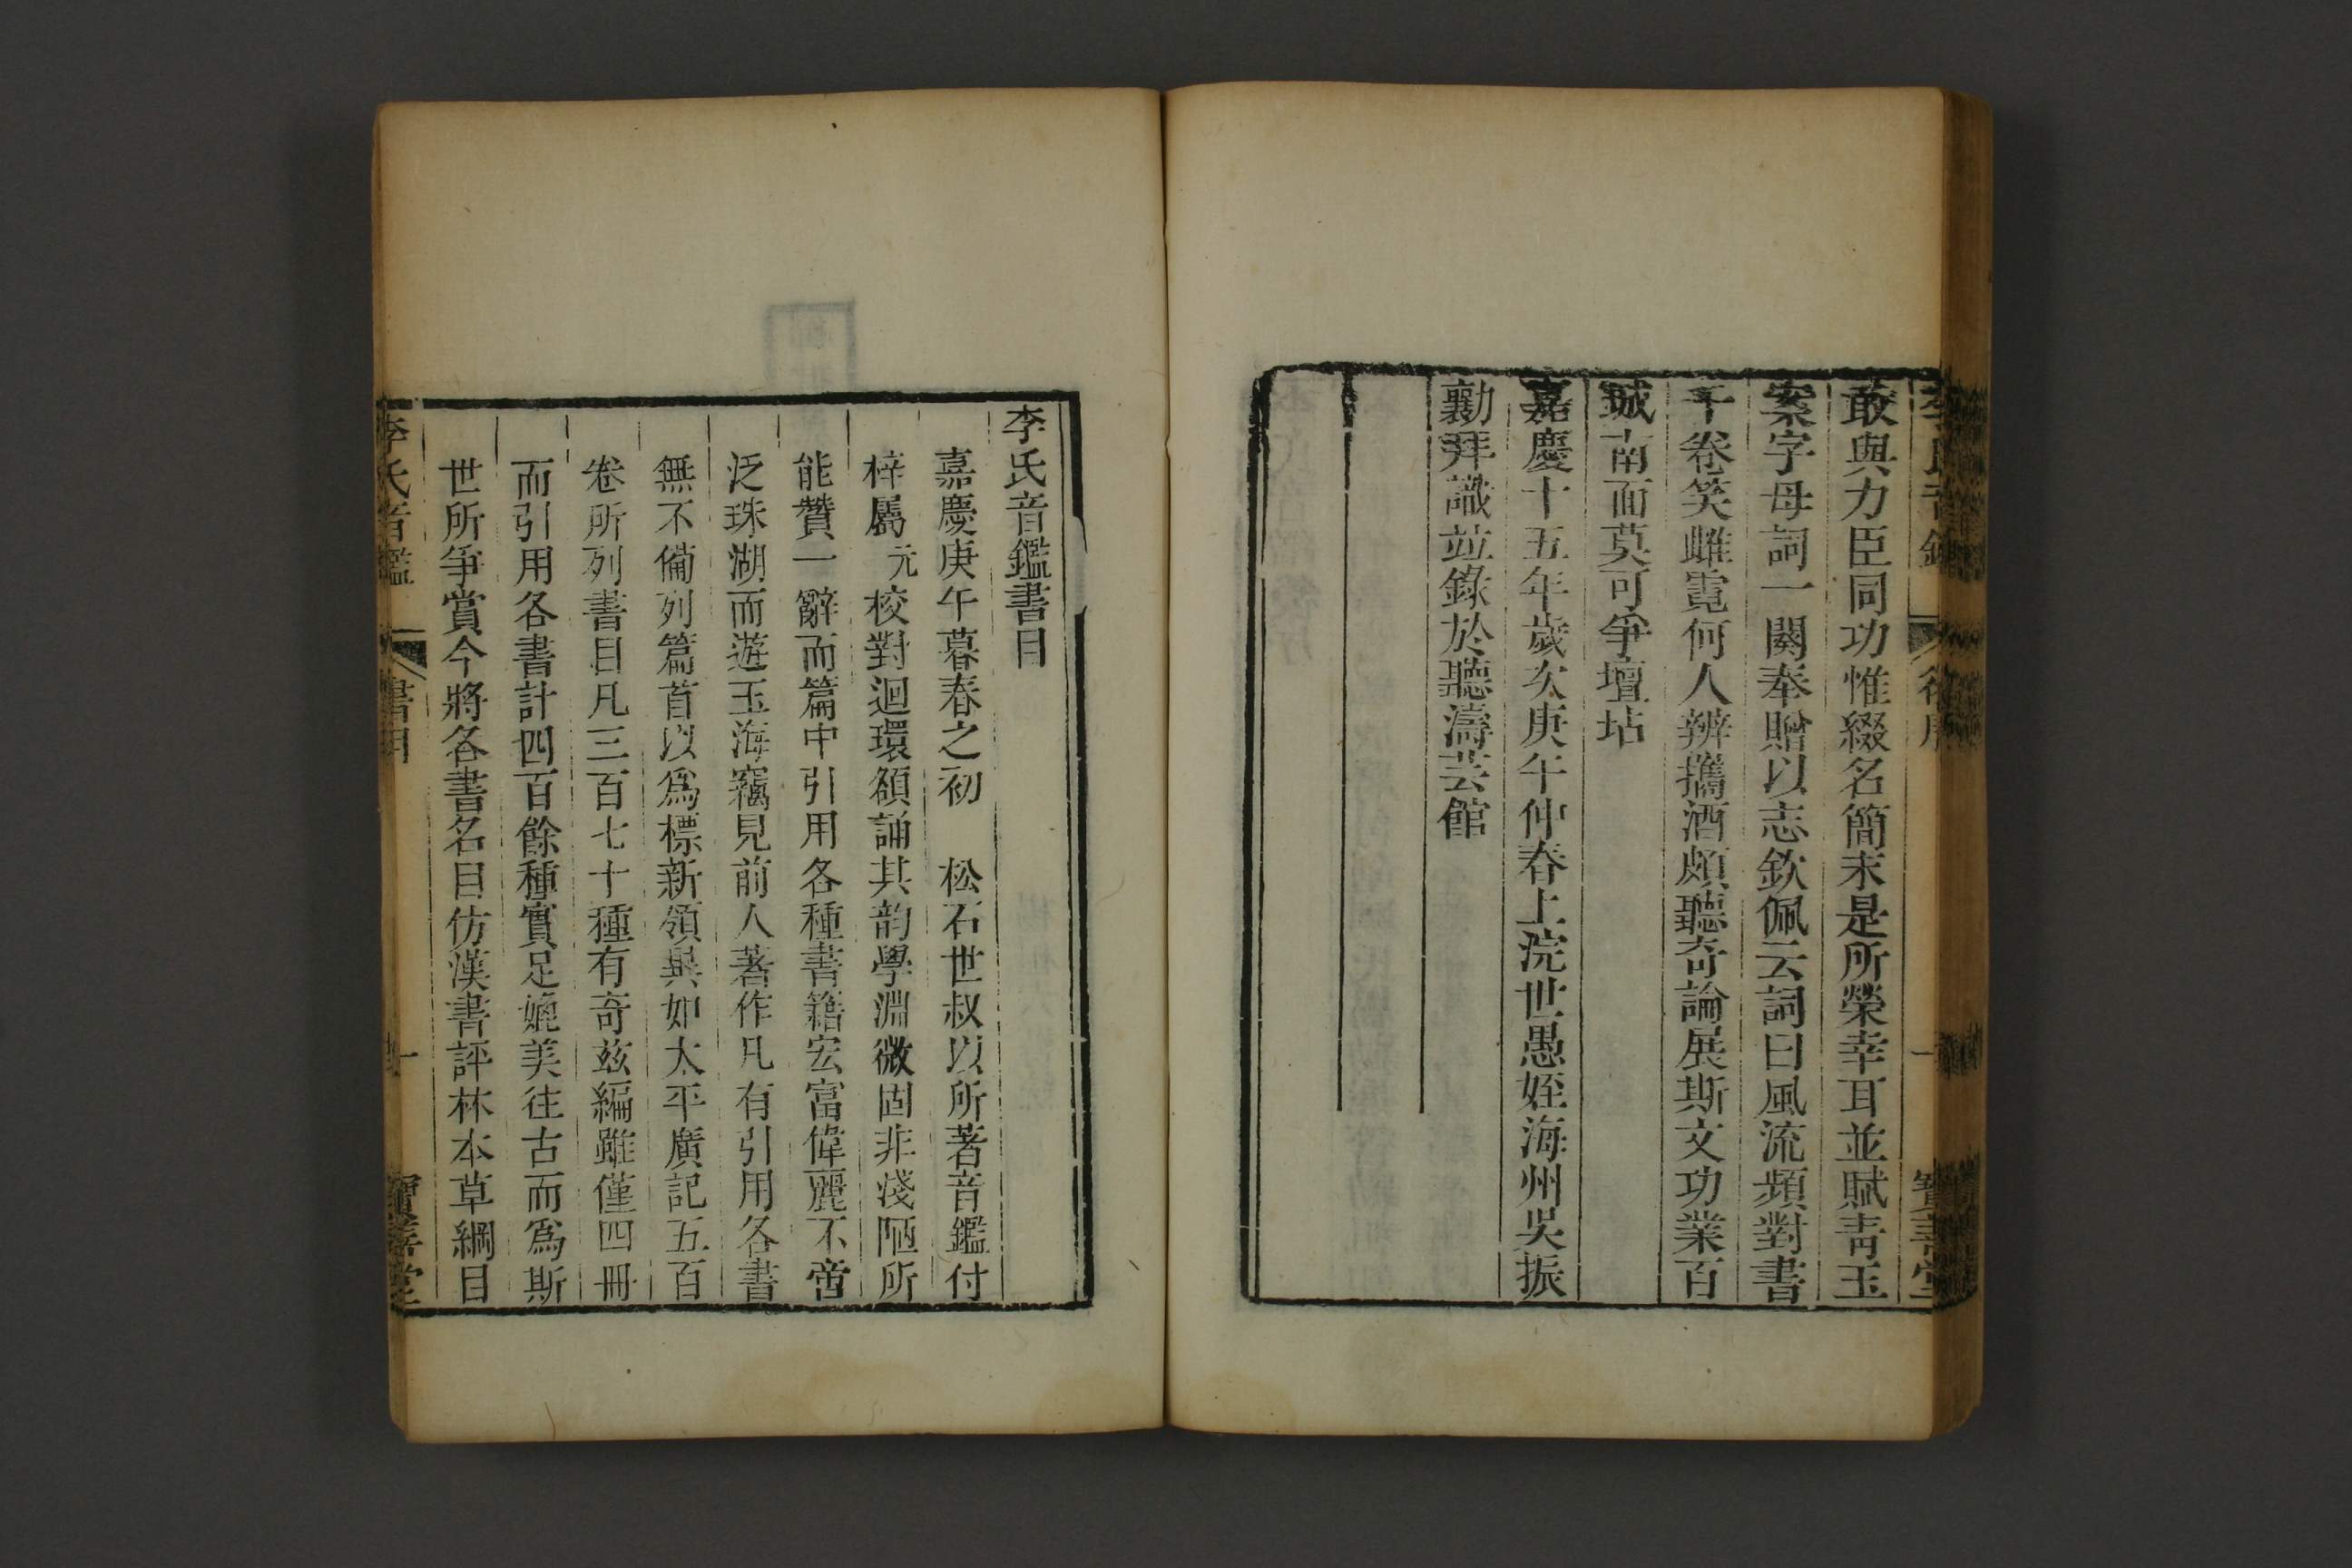 李氏音鑑 後序 一 寶善堂
敢與力臣同功惟綴名簡末是所榮幸耳並賦靑玉
案字母詞一闋奉贈以志欽佩云詞曰風流頻對書
千卷笑雌霓何人辨攜酒頗聽奇論展斯文功業百
城南面莫可爭壇坫
嘉慶十五年歲次庚午仲春上浣世愚姪海州吳振
勷拜識並錄於聽濤芸館
李氏音鑑書目
嘉慶庚午暮春之初 松石世叔以所著音鑑付
梓屬元校對迴環額誦其韵學淵微固非淺陋所
能贊一辭而篇中引用各種書籍宏富偉麗不啻
泛珠湖而遊玉海竊見前人著作凡有引用各書
無不備列篇首以爲標新領異如太平廣記五百
卷所列書目凡三百七十種有奇茲編雖僅四冊
而引用各書計四百餘種實足媲美往古而爲斯
世所爭賞今將各書名目仿漢書評林本草綱目
李氏音鑑 書目 一 寶善堂